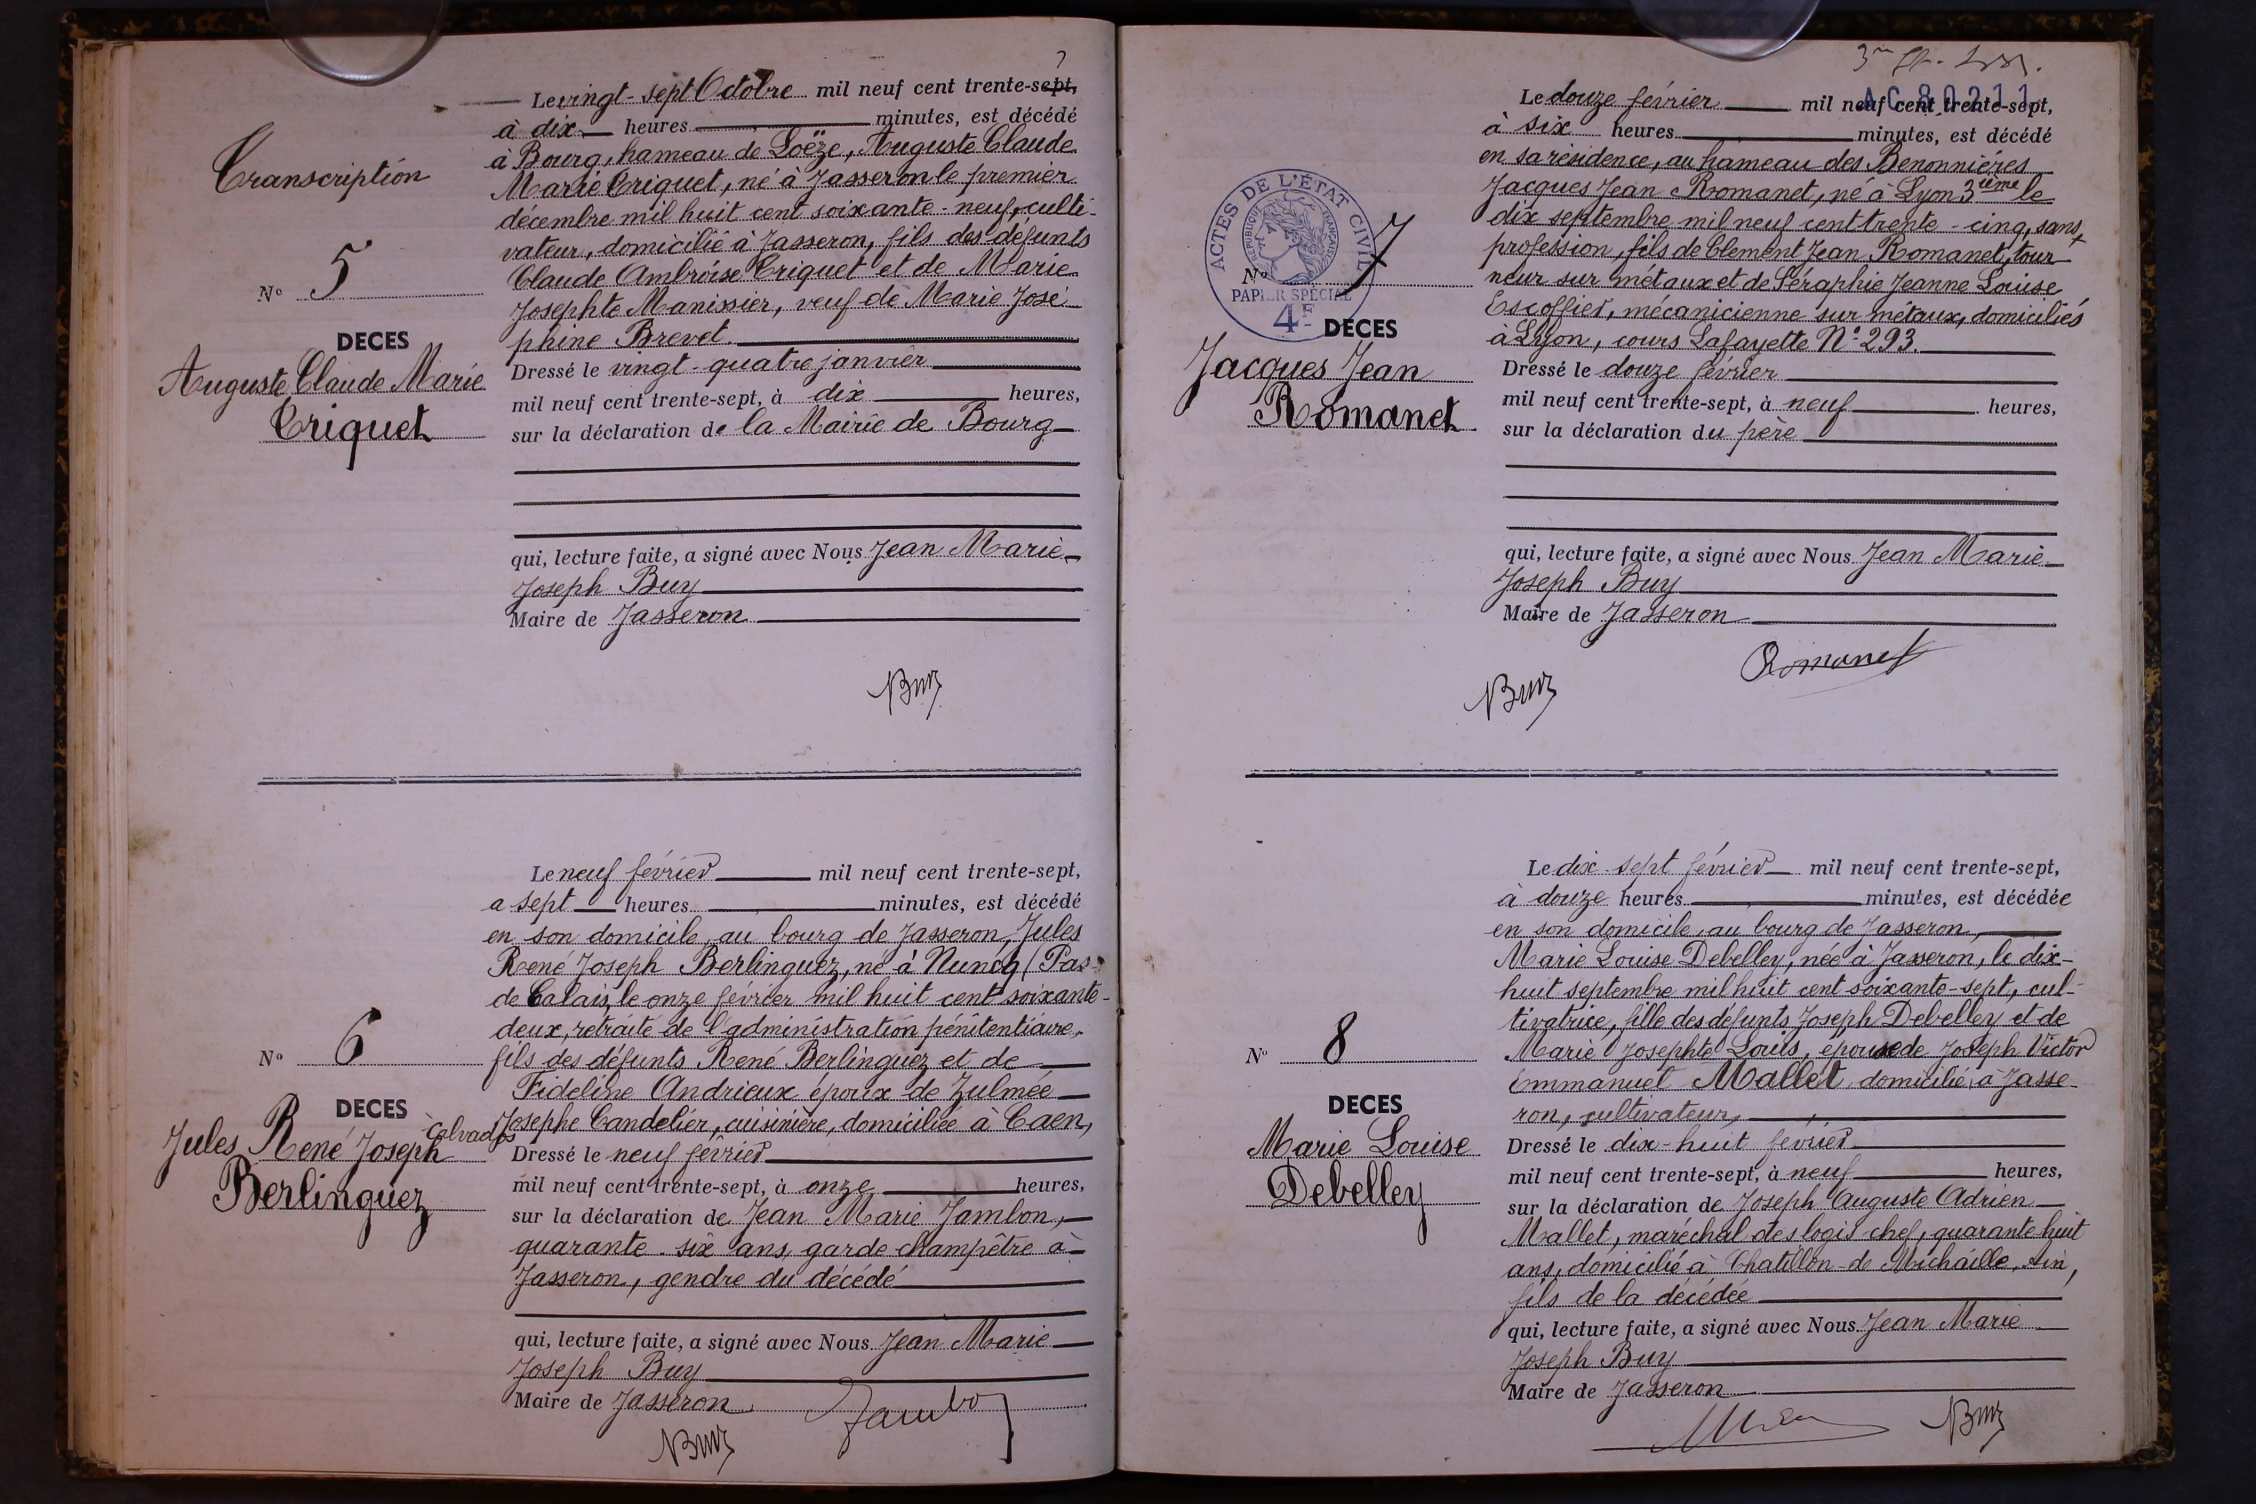 Le vingt-sept Octobre mil neuf cent trente-sept,
à dix heures minutes, est décédé
à Bourg, hameau de Loëze, Auguste Claude
Marie Criquet, né à Jasseron le premier
décembre mil huit cent soixante-neuf, culti-
vateur, domicilié à Jasseron, fils des défunts
Claude Ambroise Criquet et de Marie
Josephte Manissier, veuf de Marie José-
phine Brevet.
Dressé le vingt-quatre janvier
mil neuf cent trente-sept, à dix heures,
sur la déclaration de la Mairie de Bourg
qui, lecture faite, a signé avec Nous Jean Marie
Joseph Buy
Maire de Jasseron
Transcription
No 5
DECES
Auguste Claude Marie
Criquet
Buy
Le neuf février mil neuf cent trente-sept,
a sept heures minutes, est décédé
en son domicile, au bourg de Jasseron, Jules
René Joseph Berlinguez, né à Nuncq (Pas-
de Calais, le onze février mil huit cent soixante-
deux, retraité de l'administration pénitentiaire,
fils des défunts René Berlinguez et de
Fideline Andrieux époux de Zulmée
Josephe Candelier, cuisinière, domiciliée à Caen,
Calvados
Dressé le neuf février
mil neuf cent trente-sept, à onze heures,
sur la déclaration de Jean Marie Jambon,
quarante-six ans, garde champêtre à
Jasseron, gendre du décédé
qui, lecture faite, a signé avec Nous Jean Marie
Joseph Buy
Maire de Jasseron
No 6
DECES
Jules René Joseph
Berlinguez
Jambon
Buy
AC 80211
Le douze février mil neuf cent trente-sept,
à six heures minutes, est décédé
en sa résidence, au hameau des Benonnières
Jacques Jean Romanet, né à Lyon 3ième le
dix septembre mil neuf cent trente-cinq, sans
profession, fils de Clement Jean Romanet, tour
neur sur métaux et de Séraphie Jeanne Louise
Escoffier, mécanicienne sur métaux, domiciliés
à Lyon, cours Lafayette No 293.
Dressé le douze février
mil neuf cent trente-sept, à neuf heures,
sur la déclaration du père
qui, lecture faite, a signé avec Nous Jean Marie
Joseph Buy
Maire de Jasseron
ACTES DE L'ÉTAT CIVIL
RÉPUBLIQUE FRANÇAISE
PAPIER SPÉCIAL
4F
No 7
DECES
Jacques Jean
Romanet
Romanet
Buy
Le dix-sept février mil neuf cent trente-sept,
à douze heures minutes, est décédée
en son domicile, au bourg de Jasseron,
Marie Louise Debelley, née à Jasseron, le dix-
huit septembre mil huit cent soixante-sept, cul-
tivatrice, fille des défunts Joseph Debelley et de
Marie Josephte Louis, épouse de Joseph Victor
Emmanuel Mallet, domicilié à Jasse-
ron, cultivateur,
Dressé le dix-huit février
mil neuf cent trente-sept, à neuf heures,
sur la déclaration de Joseph Auguste Adrien
Mallet, maréchal des logis chef, quarante huit
ans, domicilié à Chatillon-de Michaille, Ain,
fils de la décédée
qui, lecture faite, a signé avec Nous Jean Marie
Joseph Buy
Maire de Jasseron
No 8
DECES
Marie Louise
Debelley
Buy